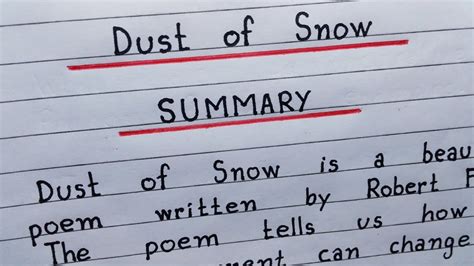 Dust of Snow
SUMMARY
Dust of Snow is a beau
poem written by Robert F
The poem tells us how
can change